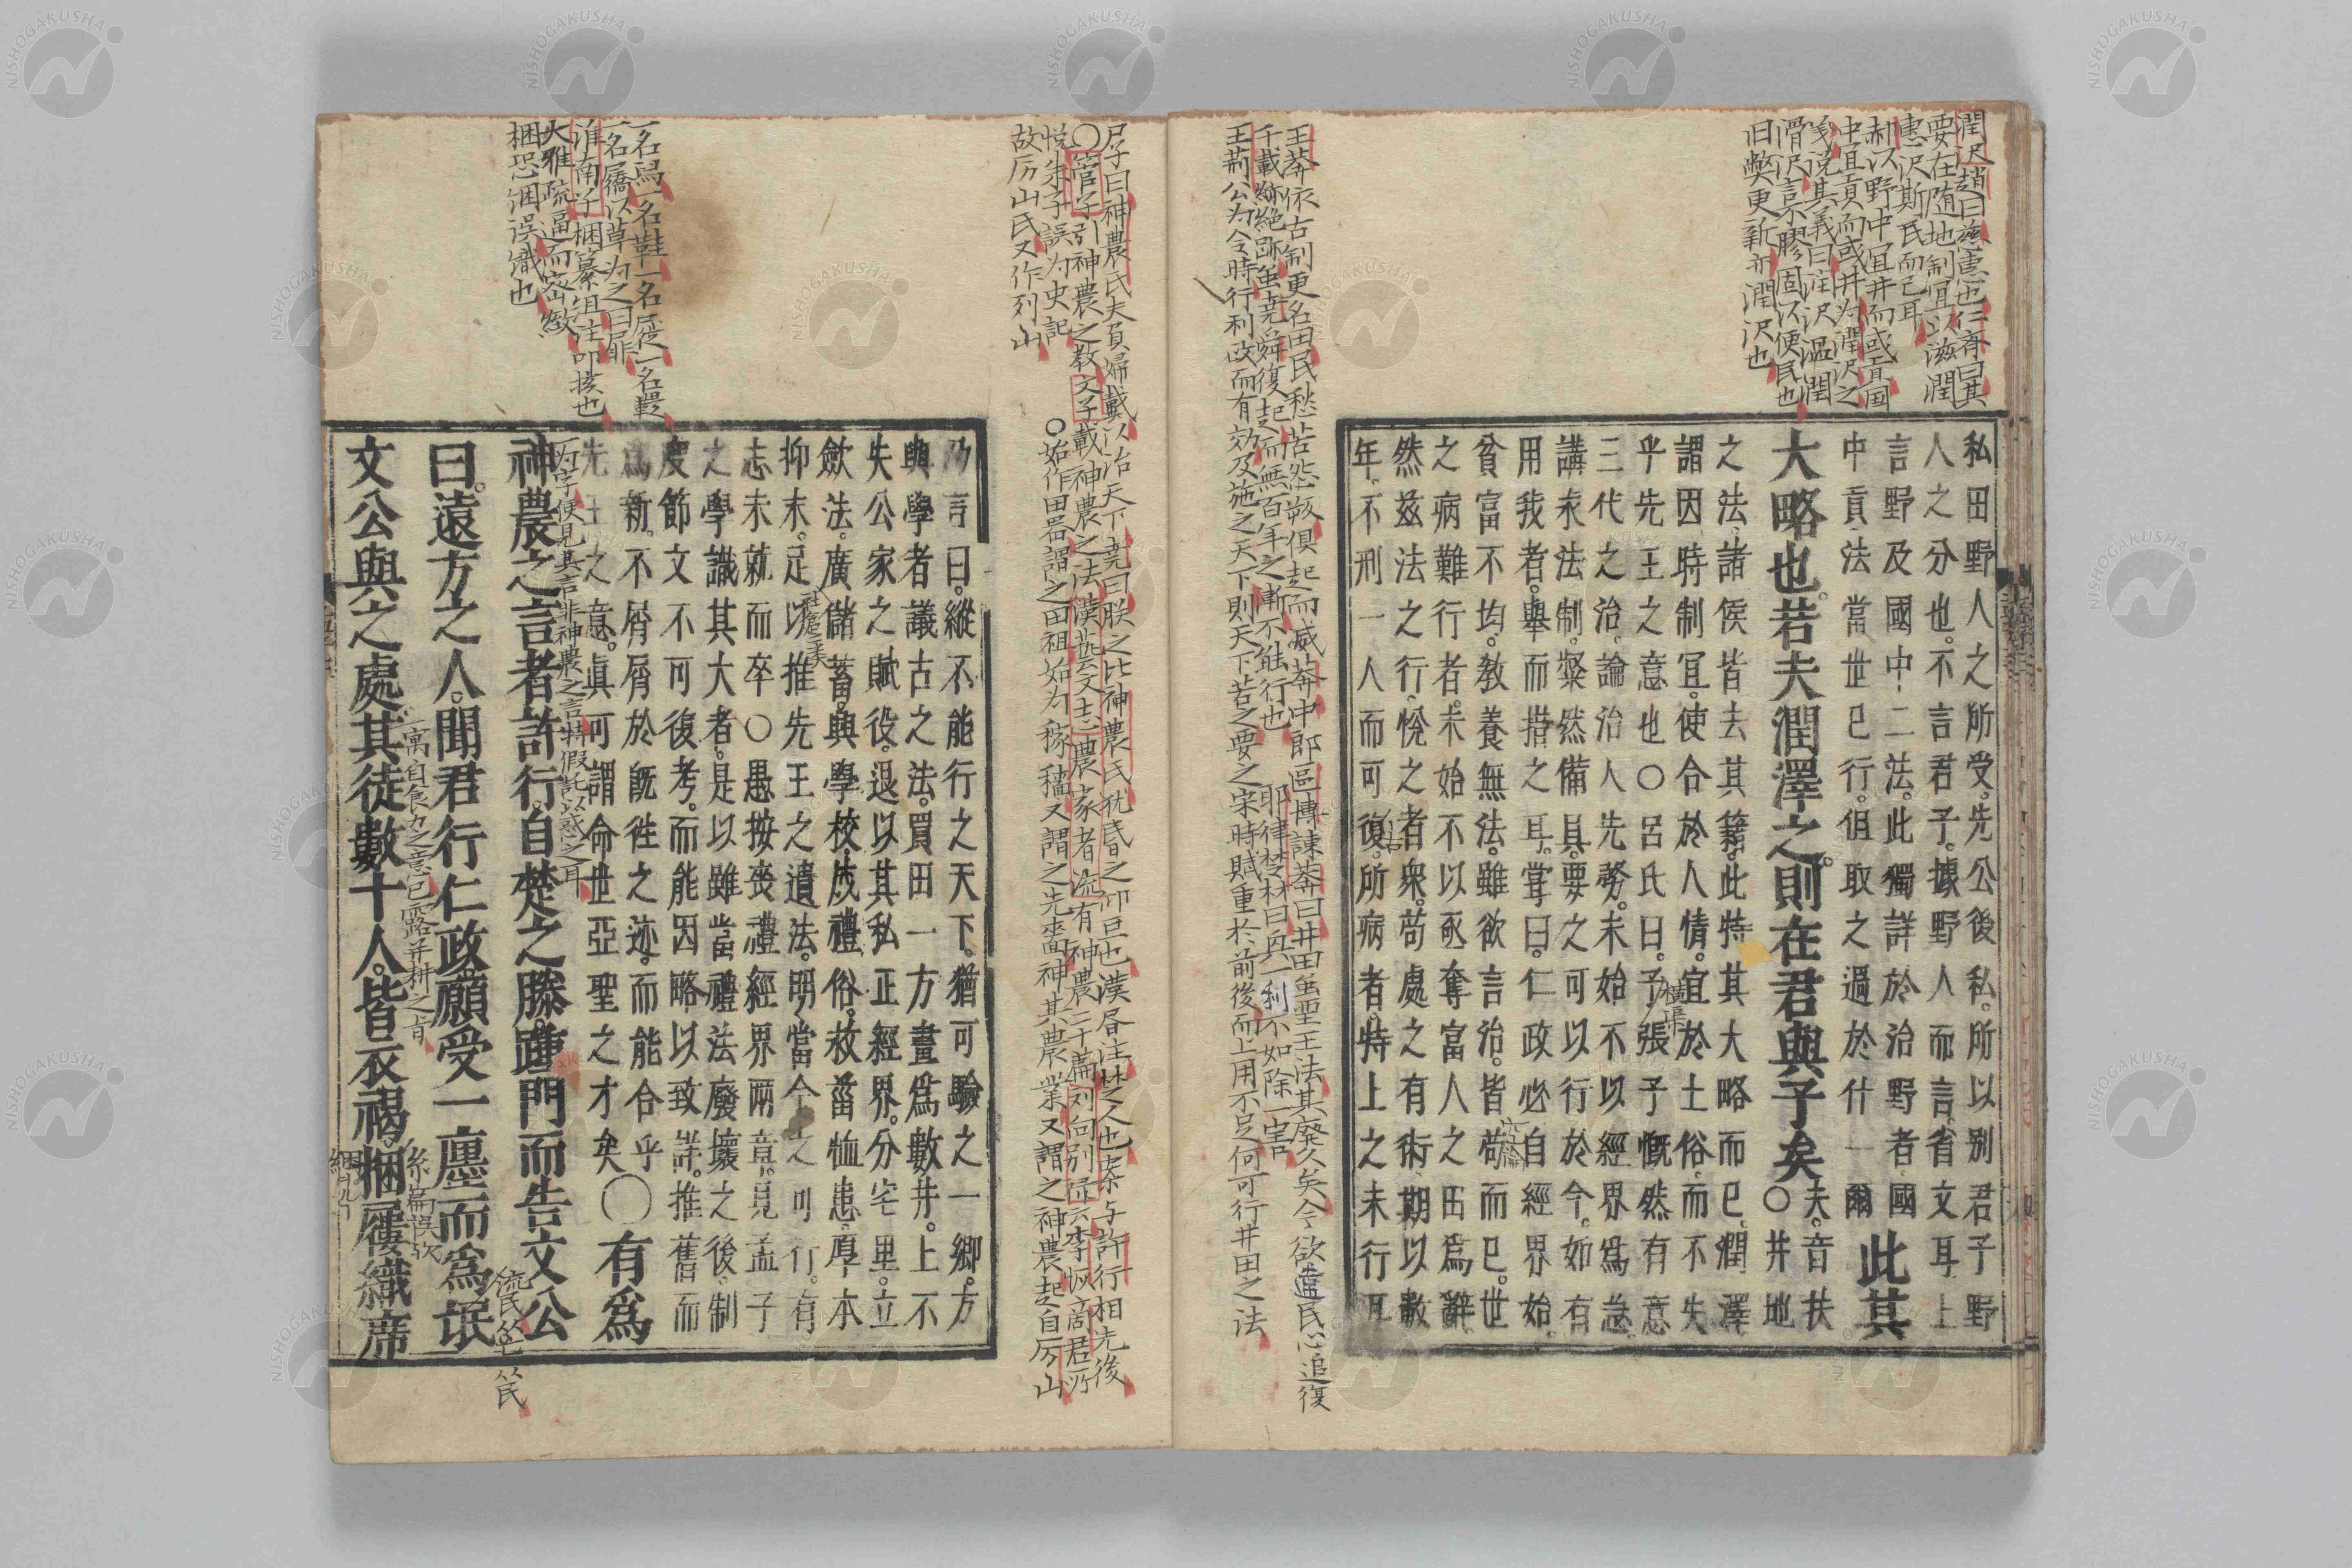 私田野人之所受。先公後私。所以別君子野
人之分也。不言君子。據野人而言。省文耳。上
言野及國中二法。此獨詳於治野者。國
中貢法。當世已行。但取之過於什一爾
此其
大略也。若夫潤澤之。則在君與子矣
夫。音扶
○井地
之法。諸侯皆去其籍。此特其大略而已。潤澤
謂因時制宜。使合於人情。宜於土俗。而不失
乎先王之意也○呂氏曰。子張子慨然有意
三代之治。論治人先務。未始不以經界爲急。
講求法制。粲然備具。要之可以行於今。如有
用我者。舉而措之耳。嘗曰。仁政必自經界始。
貧富不均。敎養無法。雖欲言治。皆苟而已。世
之病難行者。未始不以亟奪富人之田爲辭。
然茲法之行。悅之者衆。苟處之有術。期以數
年。不刑一人而可復。所病者。特上之未行耳
乃言曰。縱不能行之天下。猶可驗之一鄉。方
與學者議古之法。買田一方畫爲數井。上不
失公家之賦役。退以其私正經界。分宅里。立
斂法。廣儲蓄。興學校。成禮俗。救菑恤患。厚本
抑末。足以推先王之遺法。明當今之可行。有
志未就而卒○愚按喪禮經界兩章。見孟子
之學識其大者。是以雖當禮法廢壞之後。制
度節文不可復考。而能因略以致詳。推舊而
爲新。不屑屑於旣往之迹。而能合乎
先王之意。眞可謂命世亞聖之才矣
○有爲
神農之言者許行。自楚之滕。踵門而告文公
曰。遠方之人。聞君行仁政。願受一廛而爲氓
文公與之處。其徒數十人。皆衣褐。捆屨織席
潤沢趙曰滋惠也仁斎曰其
要在随地制宜以滋潤
惠沢斯民而已耳
旧弊更新亦潤沢也
王莽依古制更名田民愁苦怨叛俱起而滅莽中郎區博諫莽曰井田虽聖王法其廃久矣今欲違民心追復
千載絶跡虽堯舜復起而無百年之漸不能行也
耶律楚材曰興一利不如除一害
王荊公为令時行利政而有効及施之天下則天下苦之要之宋時賦重於前後而上用不足何可行井田之法
尸子曰神農氏夫負婦戴以治天下堯曰朕之比神農氏犹昏之仰旦也
○管子引神農之教文子載神農之法漢藝文志農家者流有神農二十篇劉向別録云李悝商君所
悦朱子誤为史記
故厉山氏又作列山
○始作田器謂之田祖始为稼穡又謂之先嗇神其農業又謂之神農起自厉山
淮南子捆纂組注叩椓也
大雅疏逼而密緻
捆恐涃误織也
为字便見其言非神農之言特假託以惑之耳
寓自食力之意已露并耕之旨
横渠